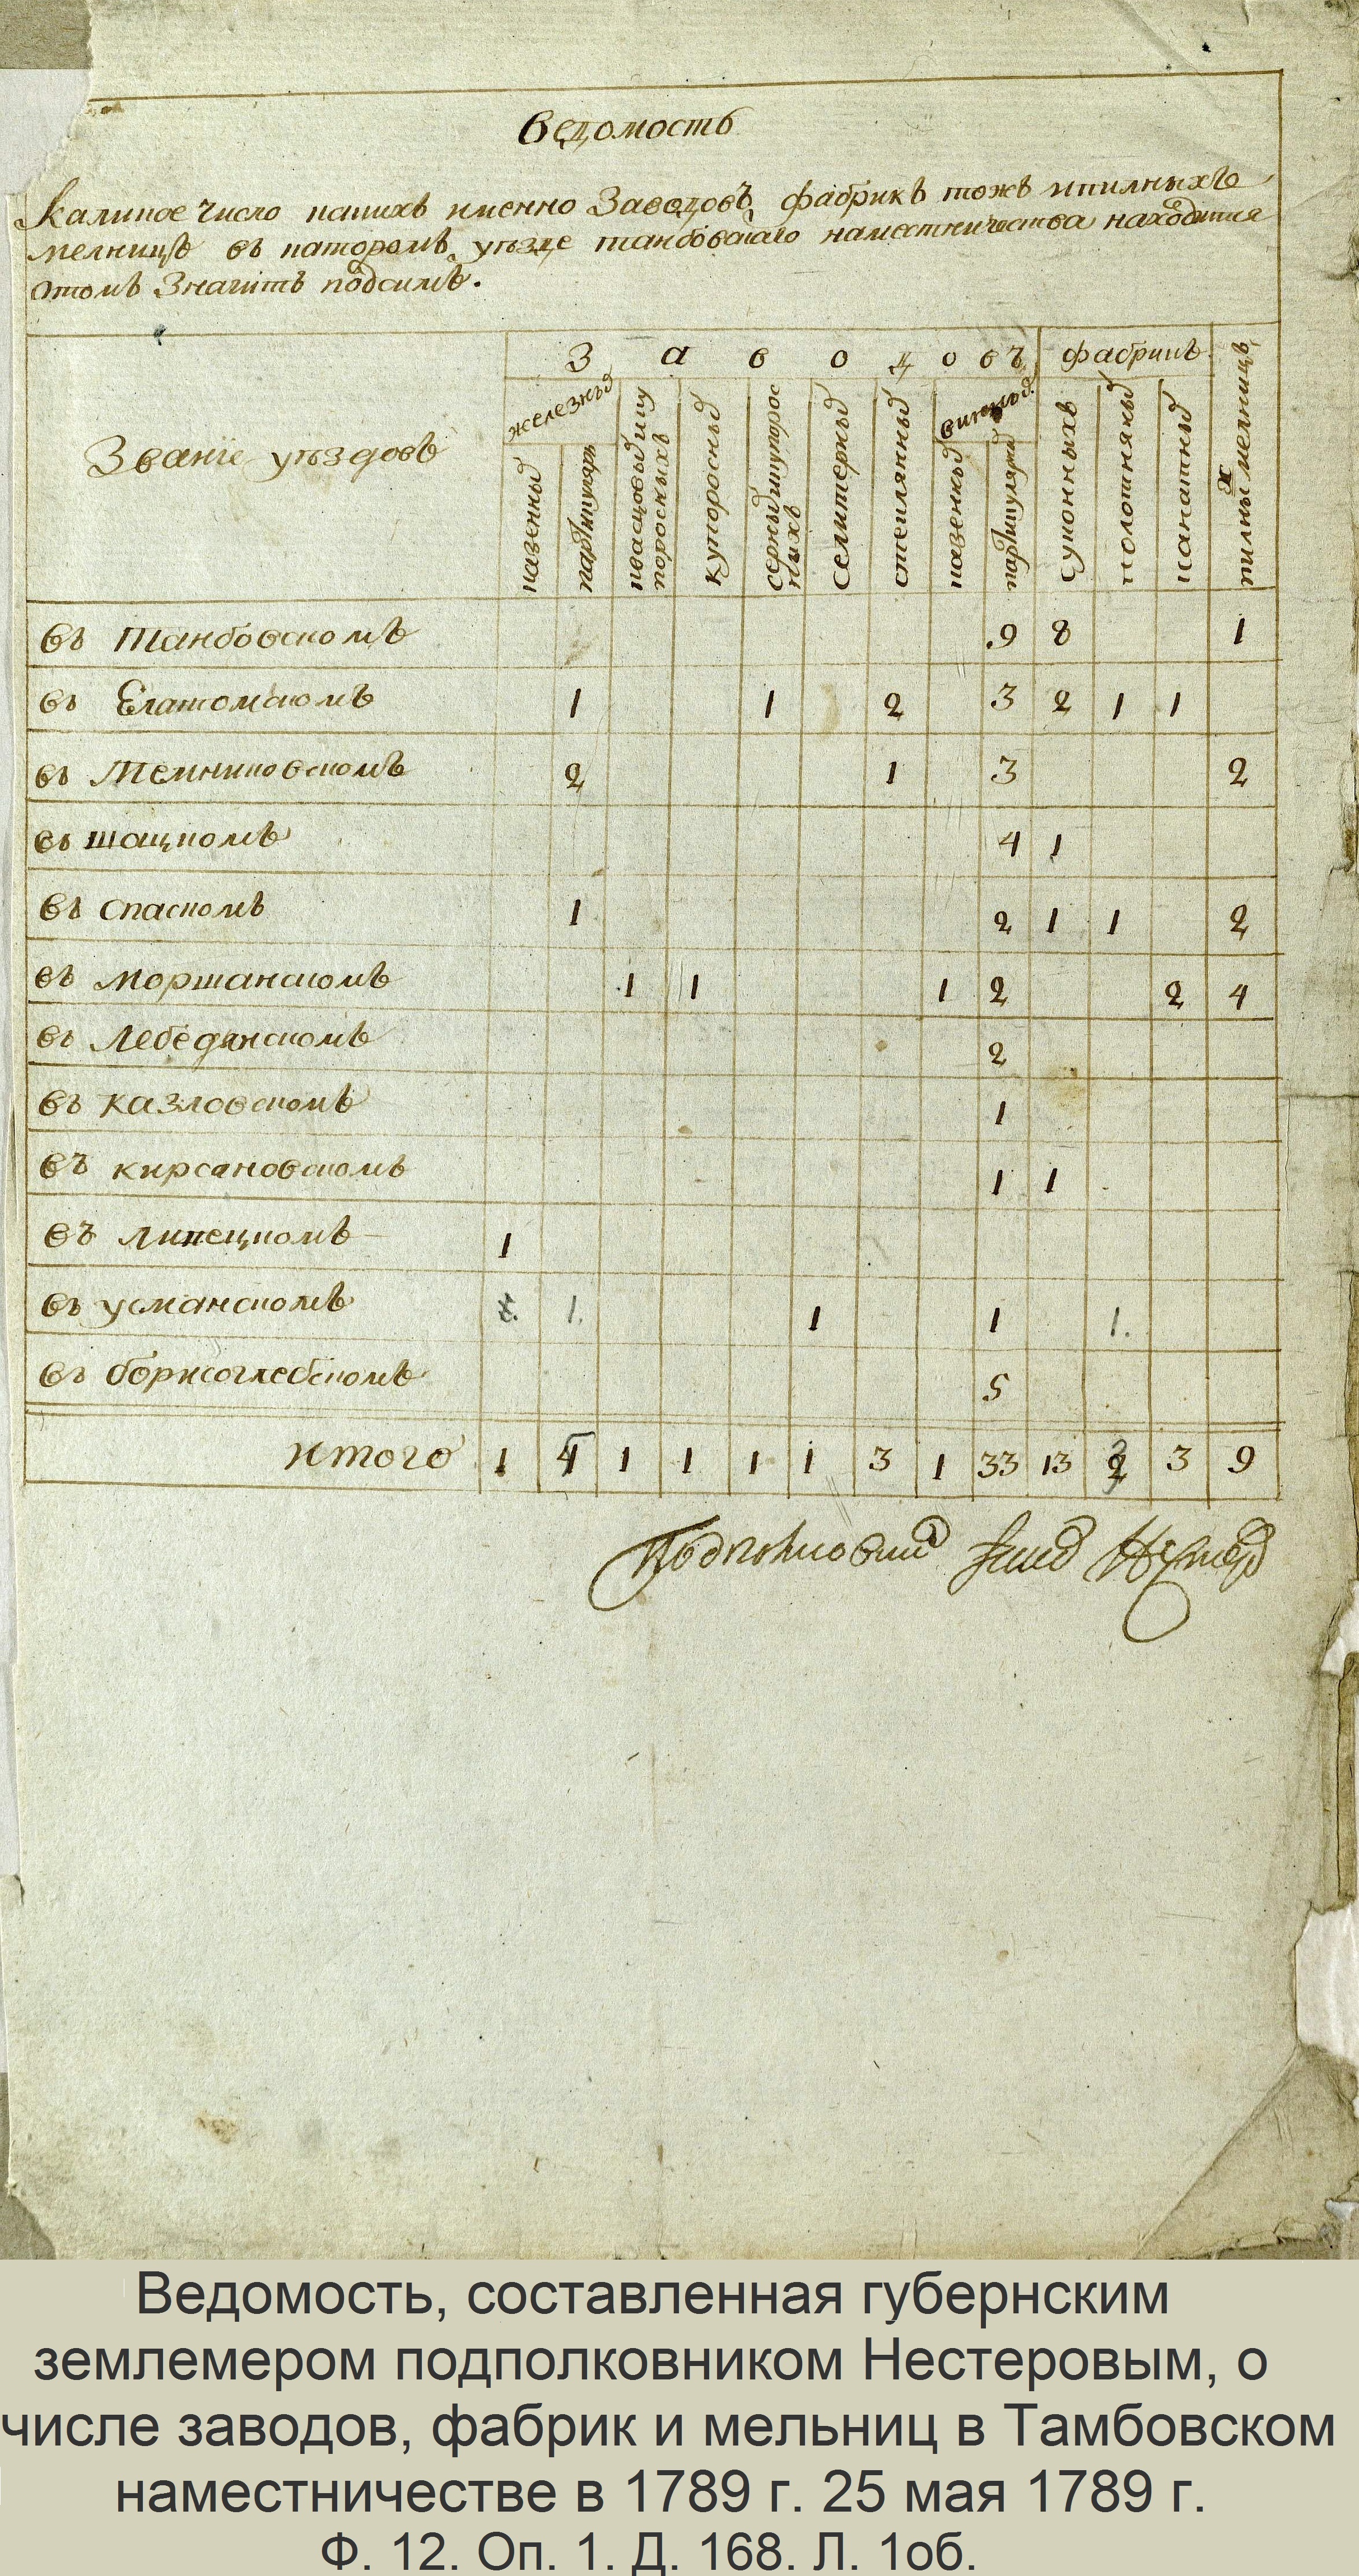 Ведомость
Каликое число какихъ именно Заводовъ фабрикъ тожъ ипилныхъ
мелницъ въ каторомъ уезде танбовскаго наместничества находитца
отомъ Значитъ подсимъ.
Званiе уездовъ
Заводовъ
фабрикъ
пилных мелницъ
железных
винных
казенных
партикуляр
квасцовых ику
поросныхъ
купоросных
серных икупорос
ныхъ
селитерных
стеклянных
казенных
партикуляр
суконныхъ
полотняных
канатных
въ танбовскомъ 9 8 1
въ Елатомскомъ 1 1 2 3 2 1 1
въ темниковскомъ 2 1 3 2
въ шацкомъ 4 1
въ спаскомъ 1 2 1 1 2
въ моршанскомъ 1 1 1 2 2 4
въ Лебедянскомъ 2
въ казловскомъ 1
въ кирсановскомъ 1 1
въ липецкомъ 1
въ усманскомъ 1. 1 1 1.
въ борисоглебскомъ 5
итого 1 4 1 1 1 1 3 1 33 13 2 3 9
Подполковник Нестеров
Ведомость, составленная губернским
землемером подполковником Нестеровым, о
числе заводов, фабрик и мельниц в Тамбовском
наместничестве в 1789 г. 25 мая 1789 г.
Ф. 12. Оп. 1. Д. 168. Л. 1об.